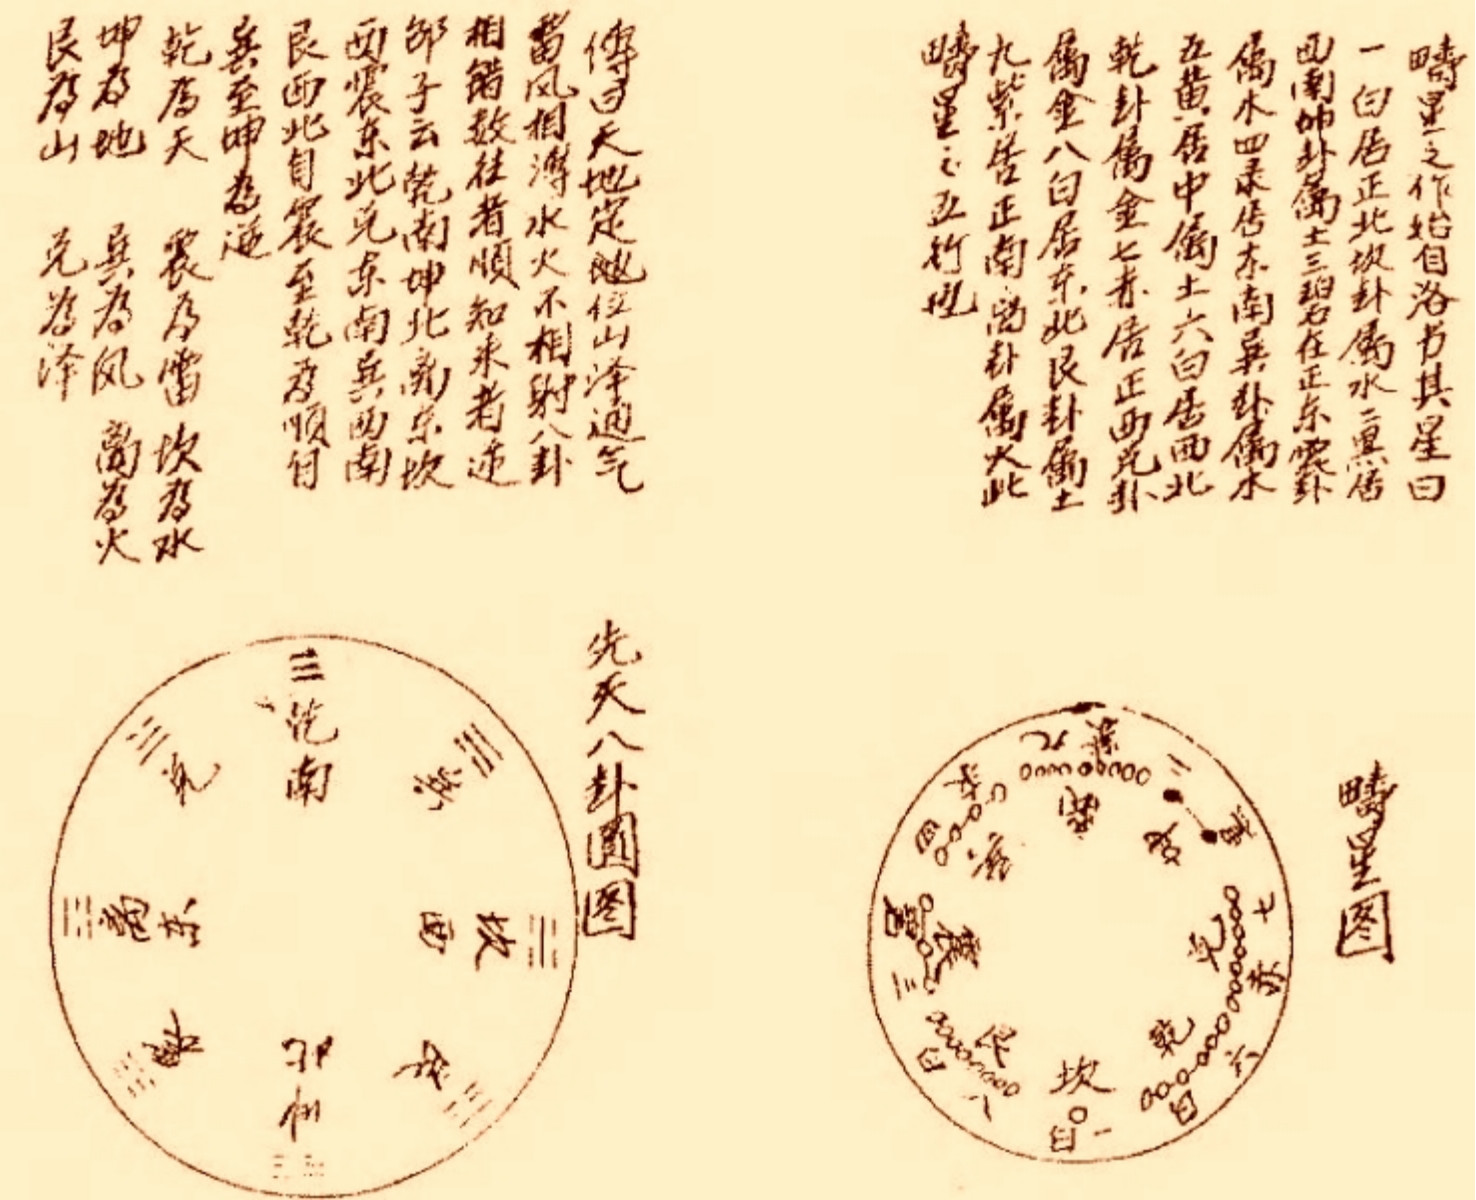 畴星之作始自洛书其星曰
一白居正北坎卦属水二黑居
西南坤卦属土三碧在正东震卦
属木四录居东南巽卦属木
五黄居中属土六白居西北
乾卦属金七赤居正西兑卦
属金八白居东北艮卦属土
九紫居正南离卦属火此
畴星之五行也
畴星图
九紫
离
二
坤
七赤
兑
六白
乾
一白
坎
八白
艮
三碧
震
四
巽
傳曰天地定地位山泽通气
雷风相溥水火不相射八卦
相错数往者順知来者逆
邵子云乾南坤北离东坎
西震东北兑东南巽西南
艮西北自震至乾为順自
巽至坤为逆
乾为天 震为雷 坎为水
坤为地 巽为风 离为火
艮为山 兑为泽
先天八卦圓图
乾南
巽
坎西
艮
坤北
震
离东
兑